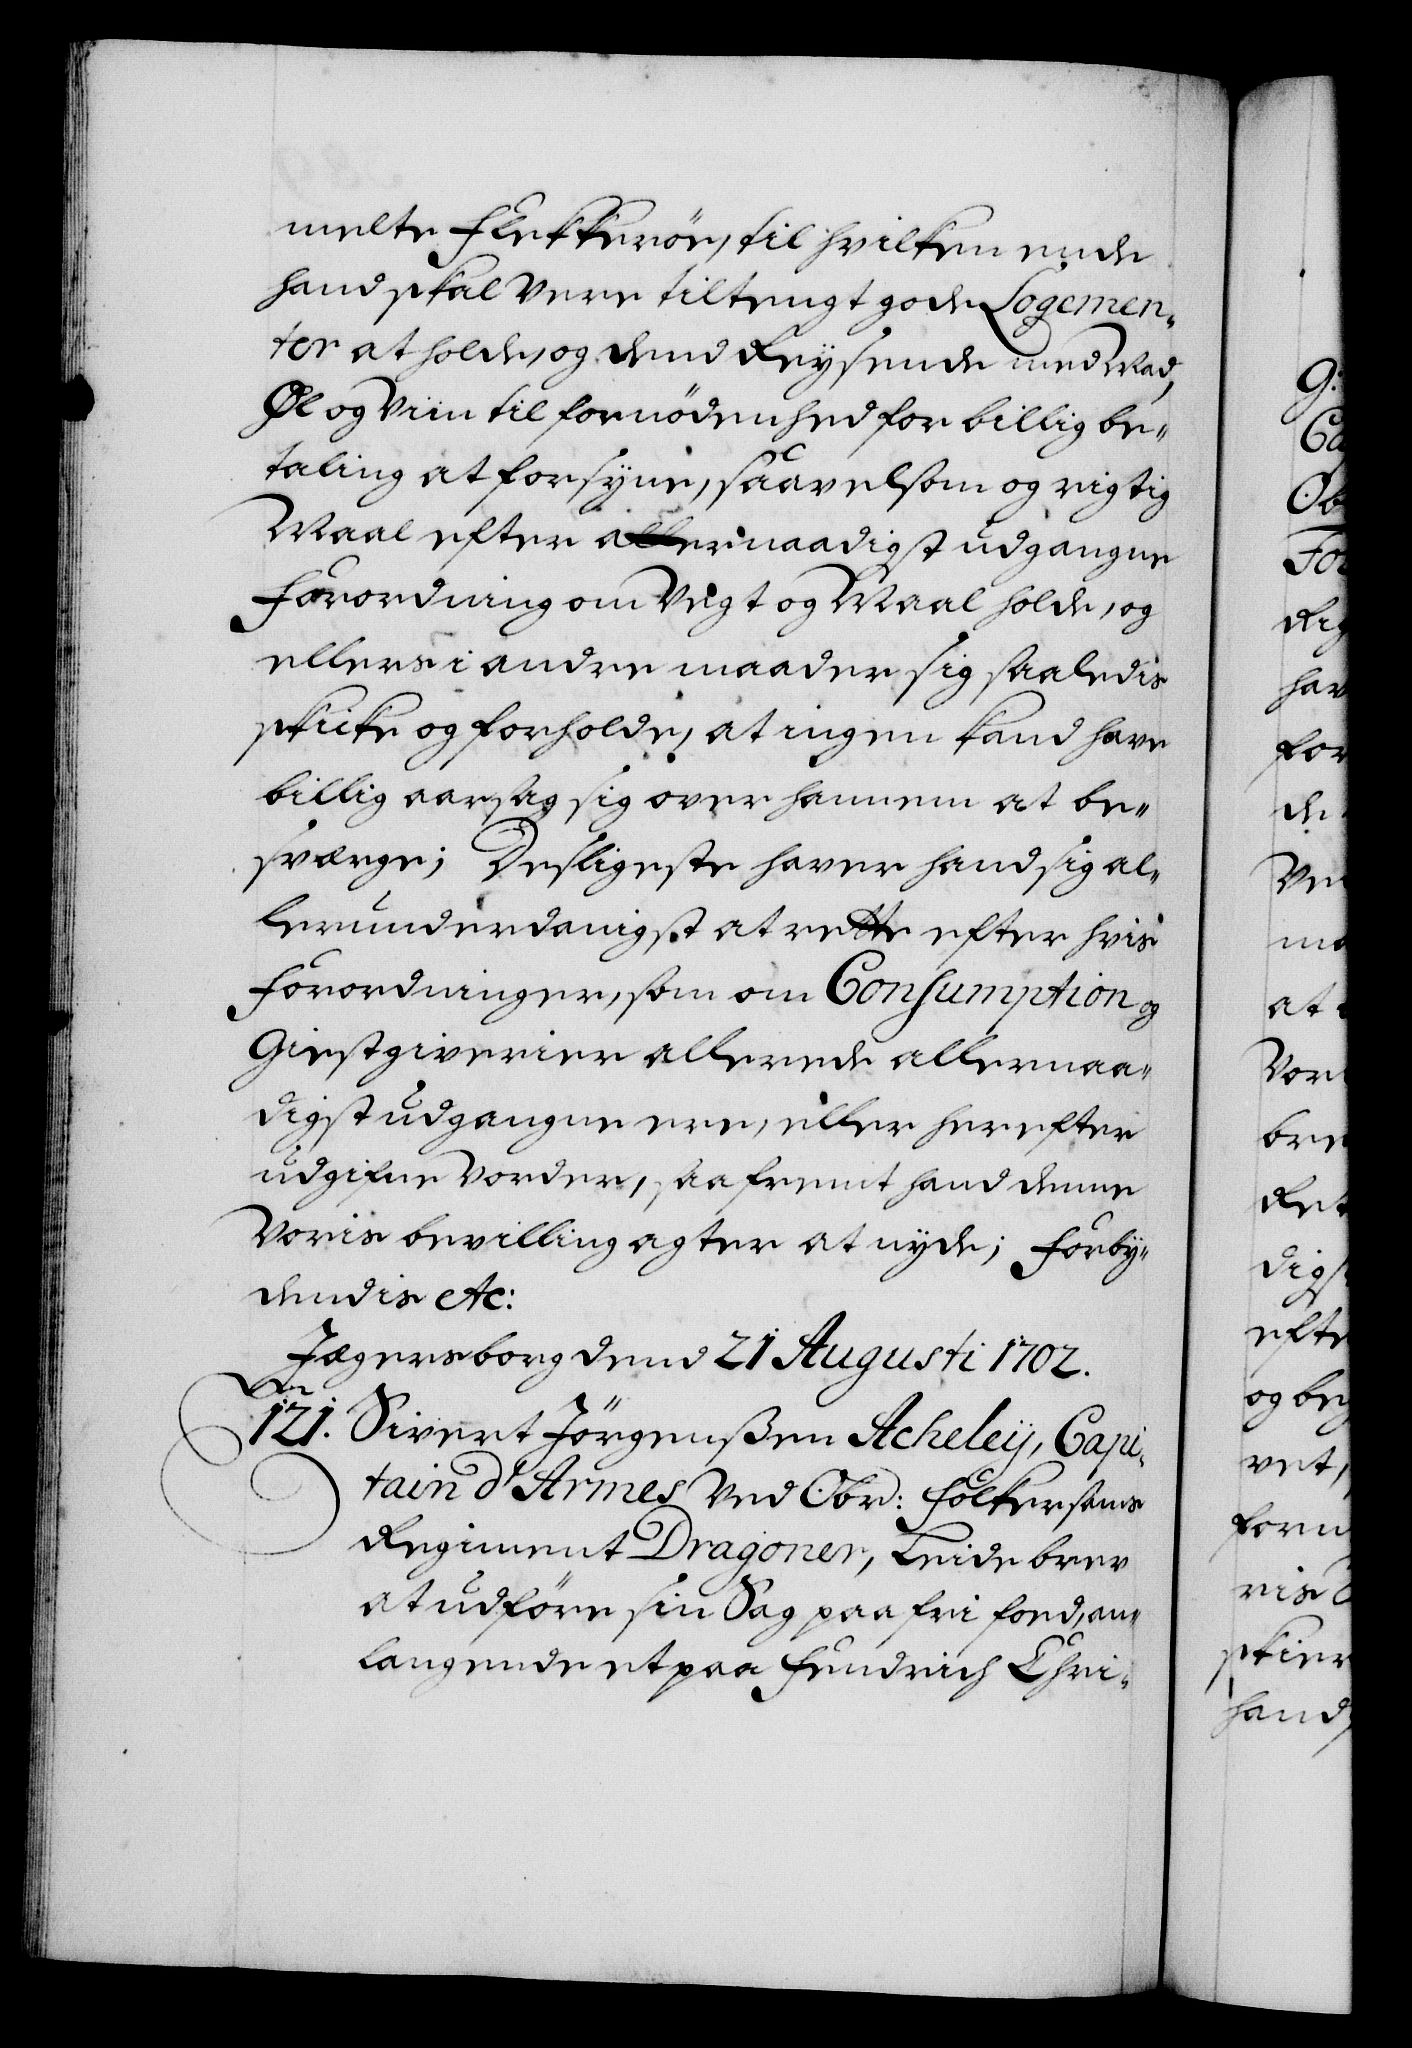 melte Flekkeröe, til hvilken ende
hand skal være tiltengt gode Logemen-
ter at holde, og dend Reysende med Mad,
Øl og Viin til fornödenhed for billig be-
taling at forsyne, saavelsom og rigtig
Maal efter allernaadigst udgangne
Forordning om Vegt og Maal holde, og
ellers i andre maader sig saaledis
skicke og forholde, at ingen kand have
billig aarsag sig over hannem at be-
sværge; Desligeste haver hand sig al-
lerunderdanigst at rette efter hvis
Forordninger, som om Consumption og
Giestgiverier allerede allernaa-
digst udgangne ere, eller herefter
udgifne vorder, saafremt hand denne
Voris bevilling agter at nyde; Forby-
dendis etc:
Jægersborg dend 21 Augusti 1702.
121. Sivert Jörgenßen Acheleÿ, Capi-
tain d'Armes ved Obr: Folkersams
Regiment Dragoner, Leidebrev
at udföre sin Sag paa fri foed, an-
langende et paa Fendrich Chri-
G:
Ca
Ob
For
Rig
hav
for
de
Ve
ma
at
Vor
bre
Ret
digs
efte
og beg
vet,
forn
ris
skier
hand